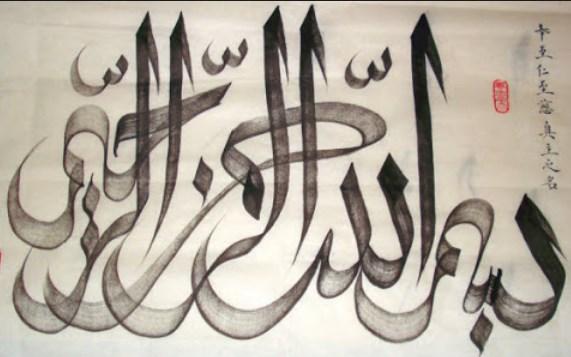 بسم الله الرحمن الرحيم
至仁至慈真主之名